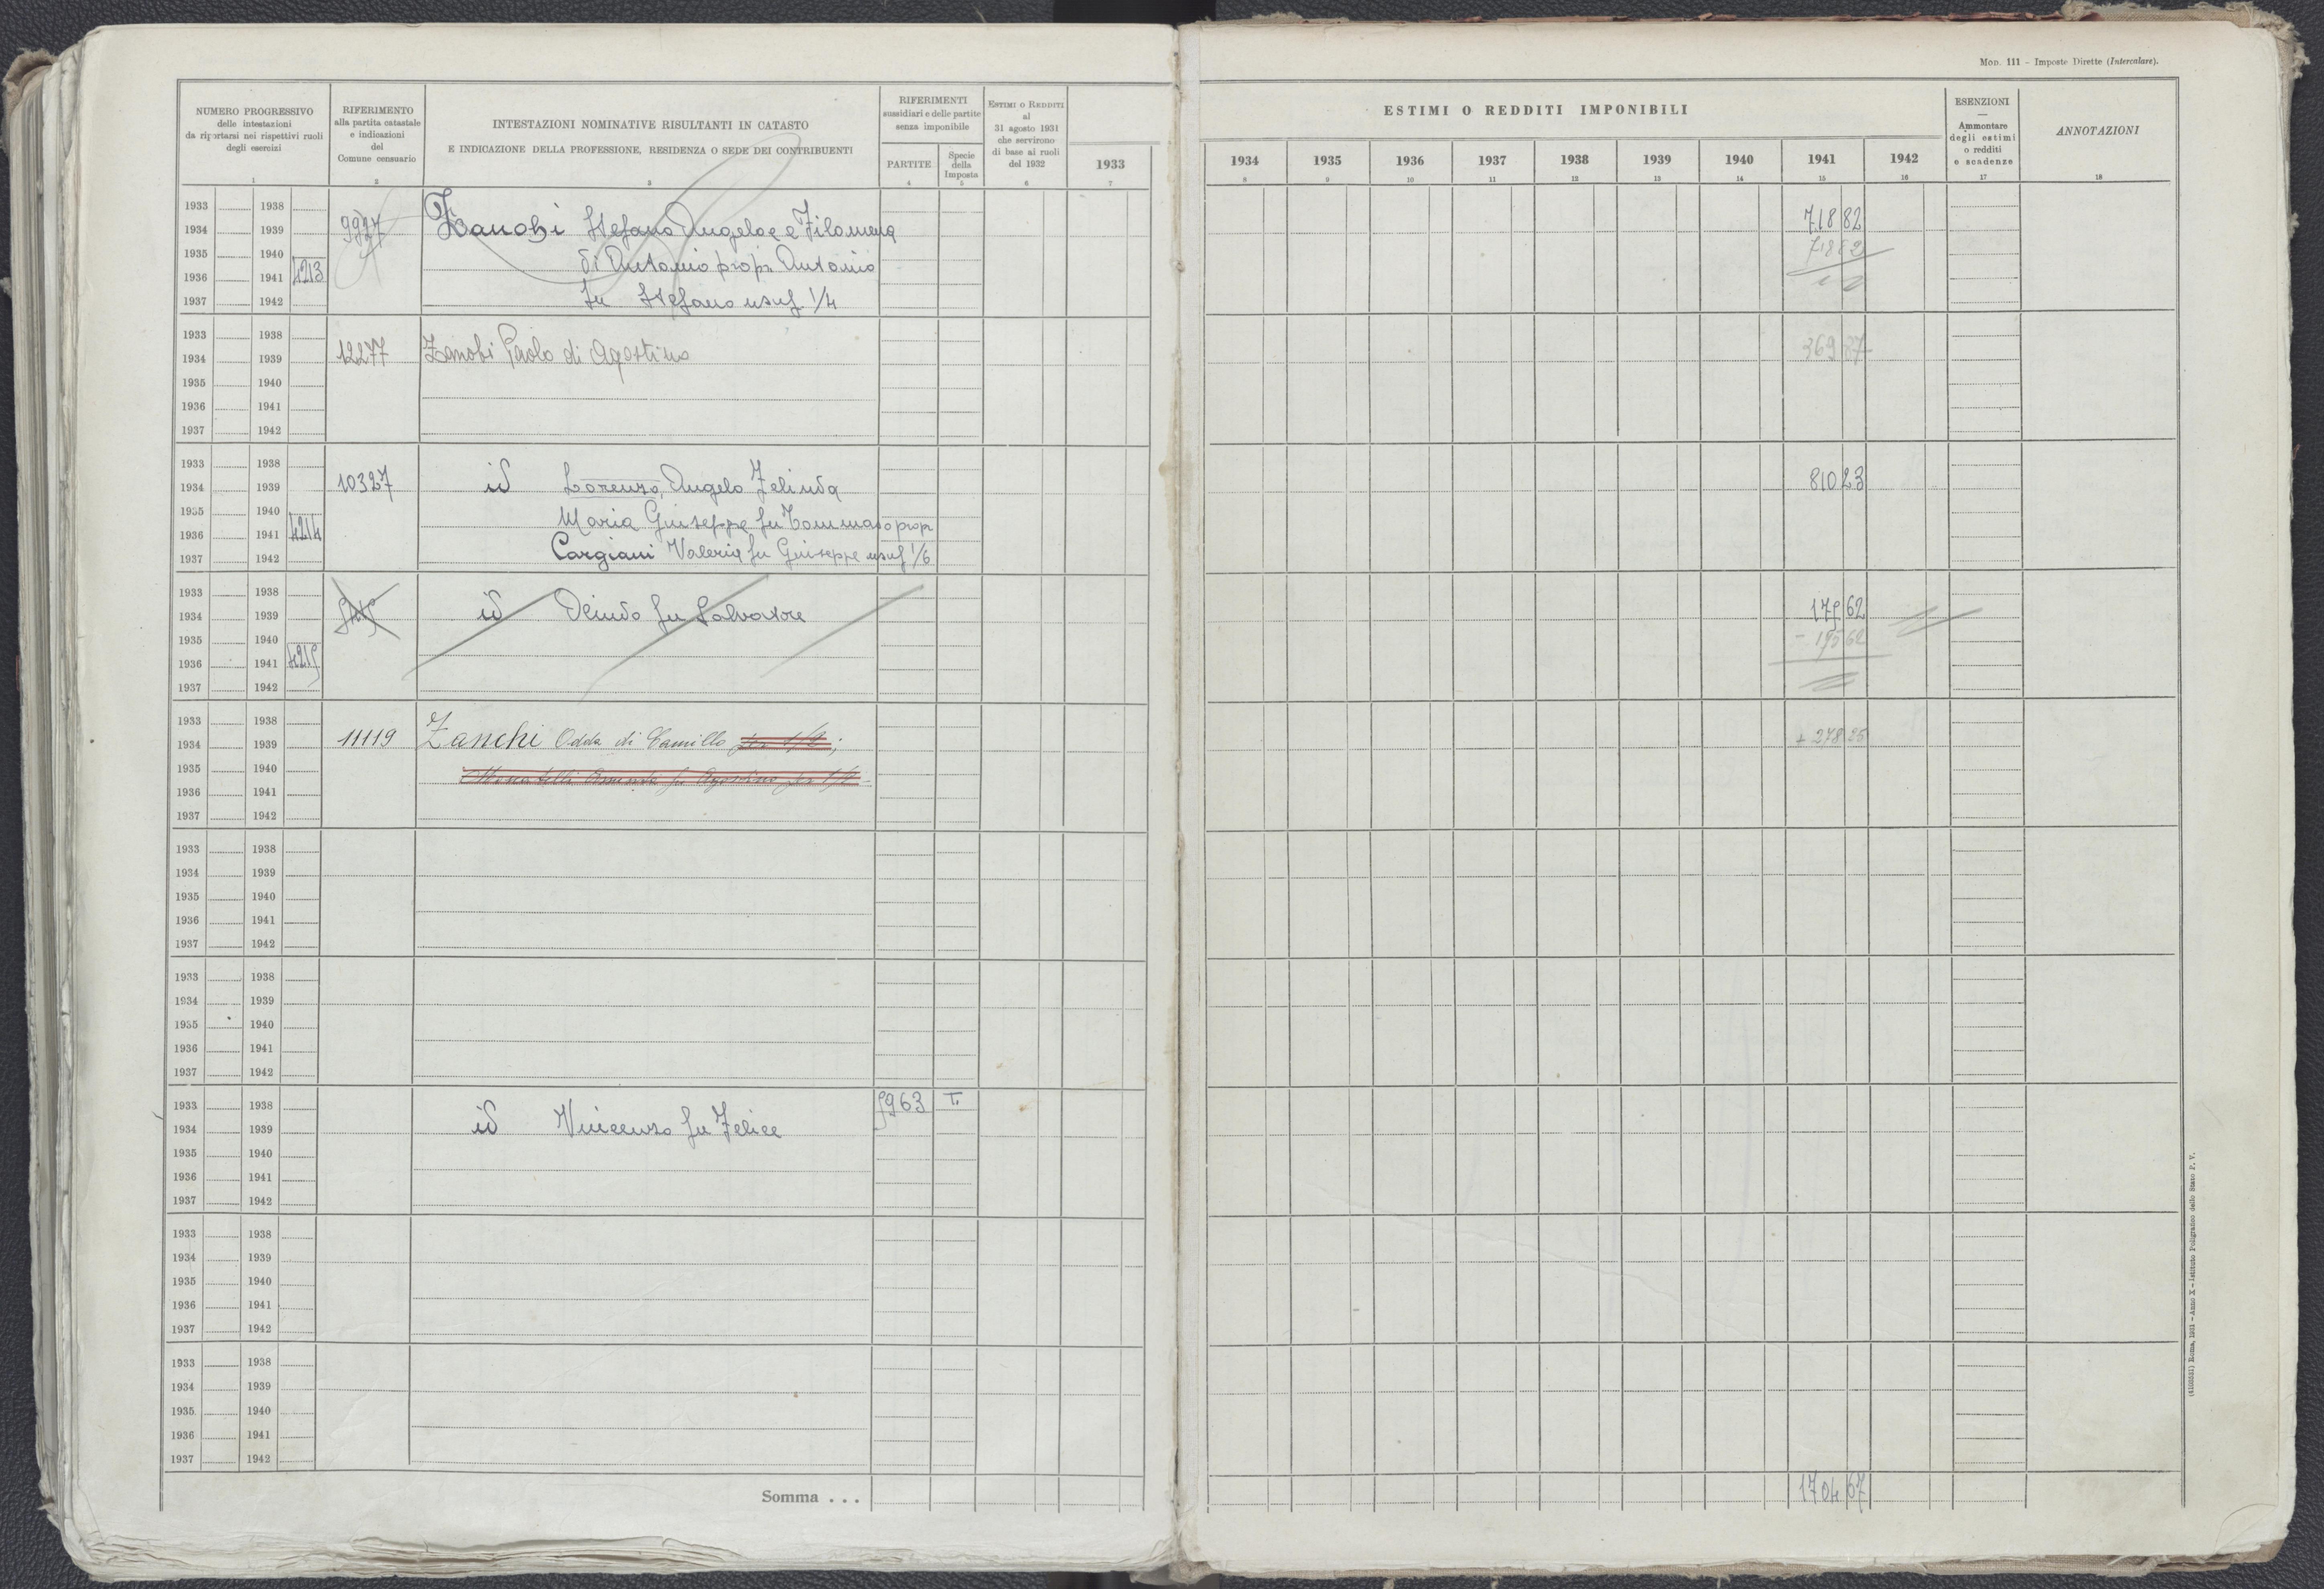 Mod. 111 - Imposte Dirette (Intercalare).
NUMERO PROGRESSIVO
delle intestazioni
da riportarsi nei rispettivi ruoli
degli esercizi
1
RIFERIMENTO
alla partita catastale
e indicazioni
del
Comune censuario
2
INTESTAZIONI NOMINATIVE RISULTANTI IN CATASTO
E INDICAZIONE DELLA PROFESSIONE, RESIDENZA O SEDE DEI CONTRIBUENTI
3
RIFERIMENTI
sussidiari e delle partite
senza imponibile
PARTITE
4
Specie
della
Imposta
5
ESTIMI O REDDITI
al
31 agosto 1931
che servirono
di base ai ruoli
del 1932
6
1933
7
ESTIMI O REDDITI IMPONIBILI
1934 1935 1936 1937 1938 1939 1940 1941 1942
8 9 10 11 12 13 14 15 16
ESENZIONI
—
Ammontare
degli estimi
o redditi
e scadenze
17
ANNOTAZIONI
18
1933 1938
1934 1939 9927 Zanobi Stefano Angela e Filomena 718 82
1935 1940 di Antonio propr Antonio 718 82
1936 1941 4213
1937 1942 fu Stefano usuf 1/4
1933 1938
1934 1939 12277 Zanobi Paolo di Agostino 369 37
1935 1940
1936 1941
1937 1942
1933 1938
1934 1939 10327 id Lorenzo, Angelo Zelinda 810 23
1935 1940 Maria Giuseppe fu Tommaso propr
1936 1941 4214
1937 1942 Cargiani Valeria fu Giuseppe usuf 1/6
1933 1938
1934 1939 id Olindo fu Salvatore 175 62
1935 1940 - 175 62
1936 1941 4215
1937 1942
1933 1938
1934 1939 11119 Zanchi Odda di Camillo per 1/2; + 278 25
1935 1940 fu Agostino per 1/2
1936 1941
1937 1942
1933 1938
1934 1939
1935 1940
1936 1941
1937 1942
1933 1938
1934 1939
1935 1940
1936 1941
1937 1942
1933 1938 5963 T.
1934 1939 id Vincenzo fu Felice
1935 1940
1936 1941
1937 1942
1933 1938
1934 1939
1935 1940
1936 1941
1937 1942
1933 1938
1934 1939
1935 1940
1936 1941
1937 1942
Somma . . . 1704 67
(4103531) Roma, 1931 - Anno X - Istituto Poligrafico dello Stato P. V.